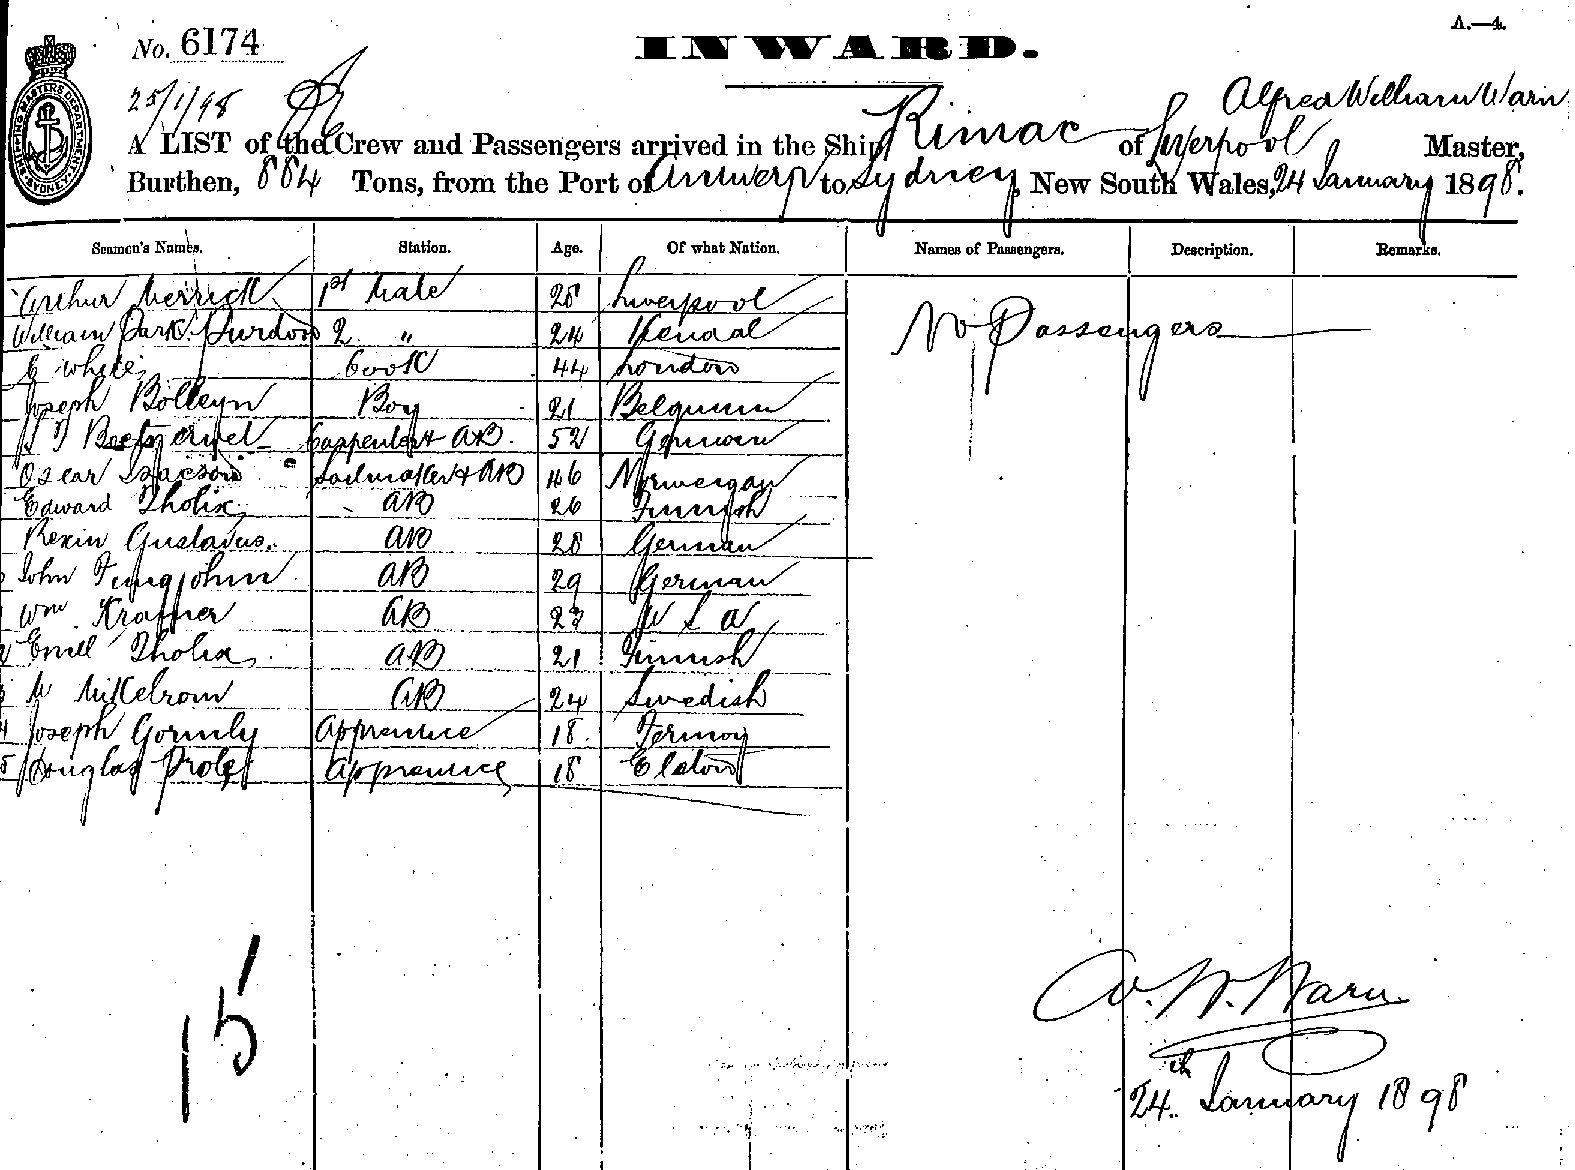 A.—4.
No. 6174
INWARD.
25/1/98
Alfred William Warn
A LIST of the Crew and Passengers arrived in the Ship Rimac of Liverpool Master,
Burthen, 884 Tons, from the Port of Antwerp to Sydney, New South Wales, 24 January 1898.
Seamen's Names. Station. Age. Of what Nation. Names of Passengers. Description. Remarks.
Arthur Merrick 1st Mate 28 Liverpool
William Park Purdow 2 " 24 Kendal
No Passengers
E White Cook 44 London
Joseph Bolleyn Boy 21 Belguium
Carpenter & AB. 52 German
Oscar Isacson Sailmaker & AB 46 Norweigan
Edward Tholix AB 26 Finnish
Rexin Gustavus. AB 28 German
John Jungjohn AB 29 German
Wm Kramer AB 27 U S A
Emil Tholix AB 21 Finnish
Mikelrom AB 24 Swedish
Joseph Gormly Apprentice 18. Fermoy
Douglas Apprentice 18
15
A. W. Warn
24th January 1898